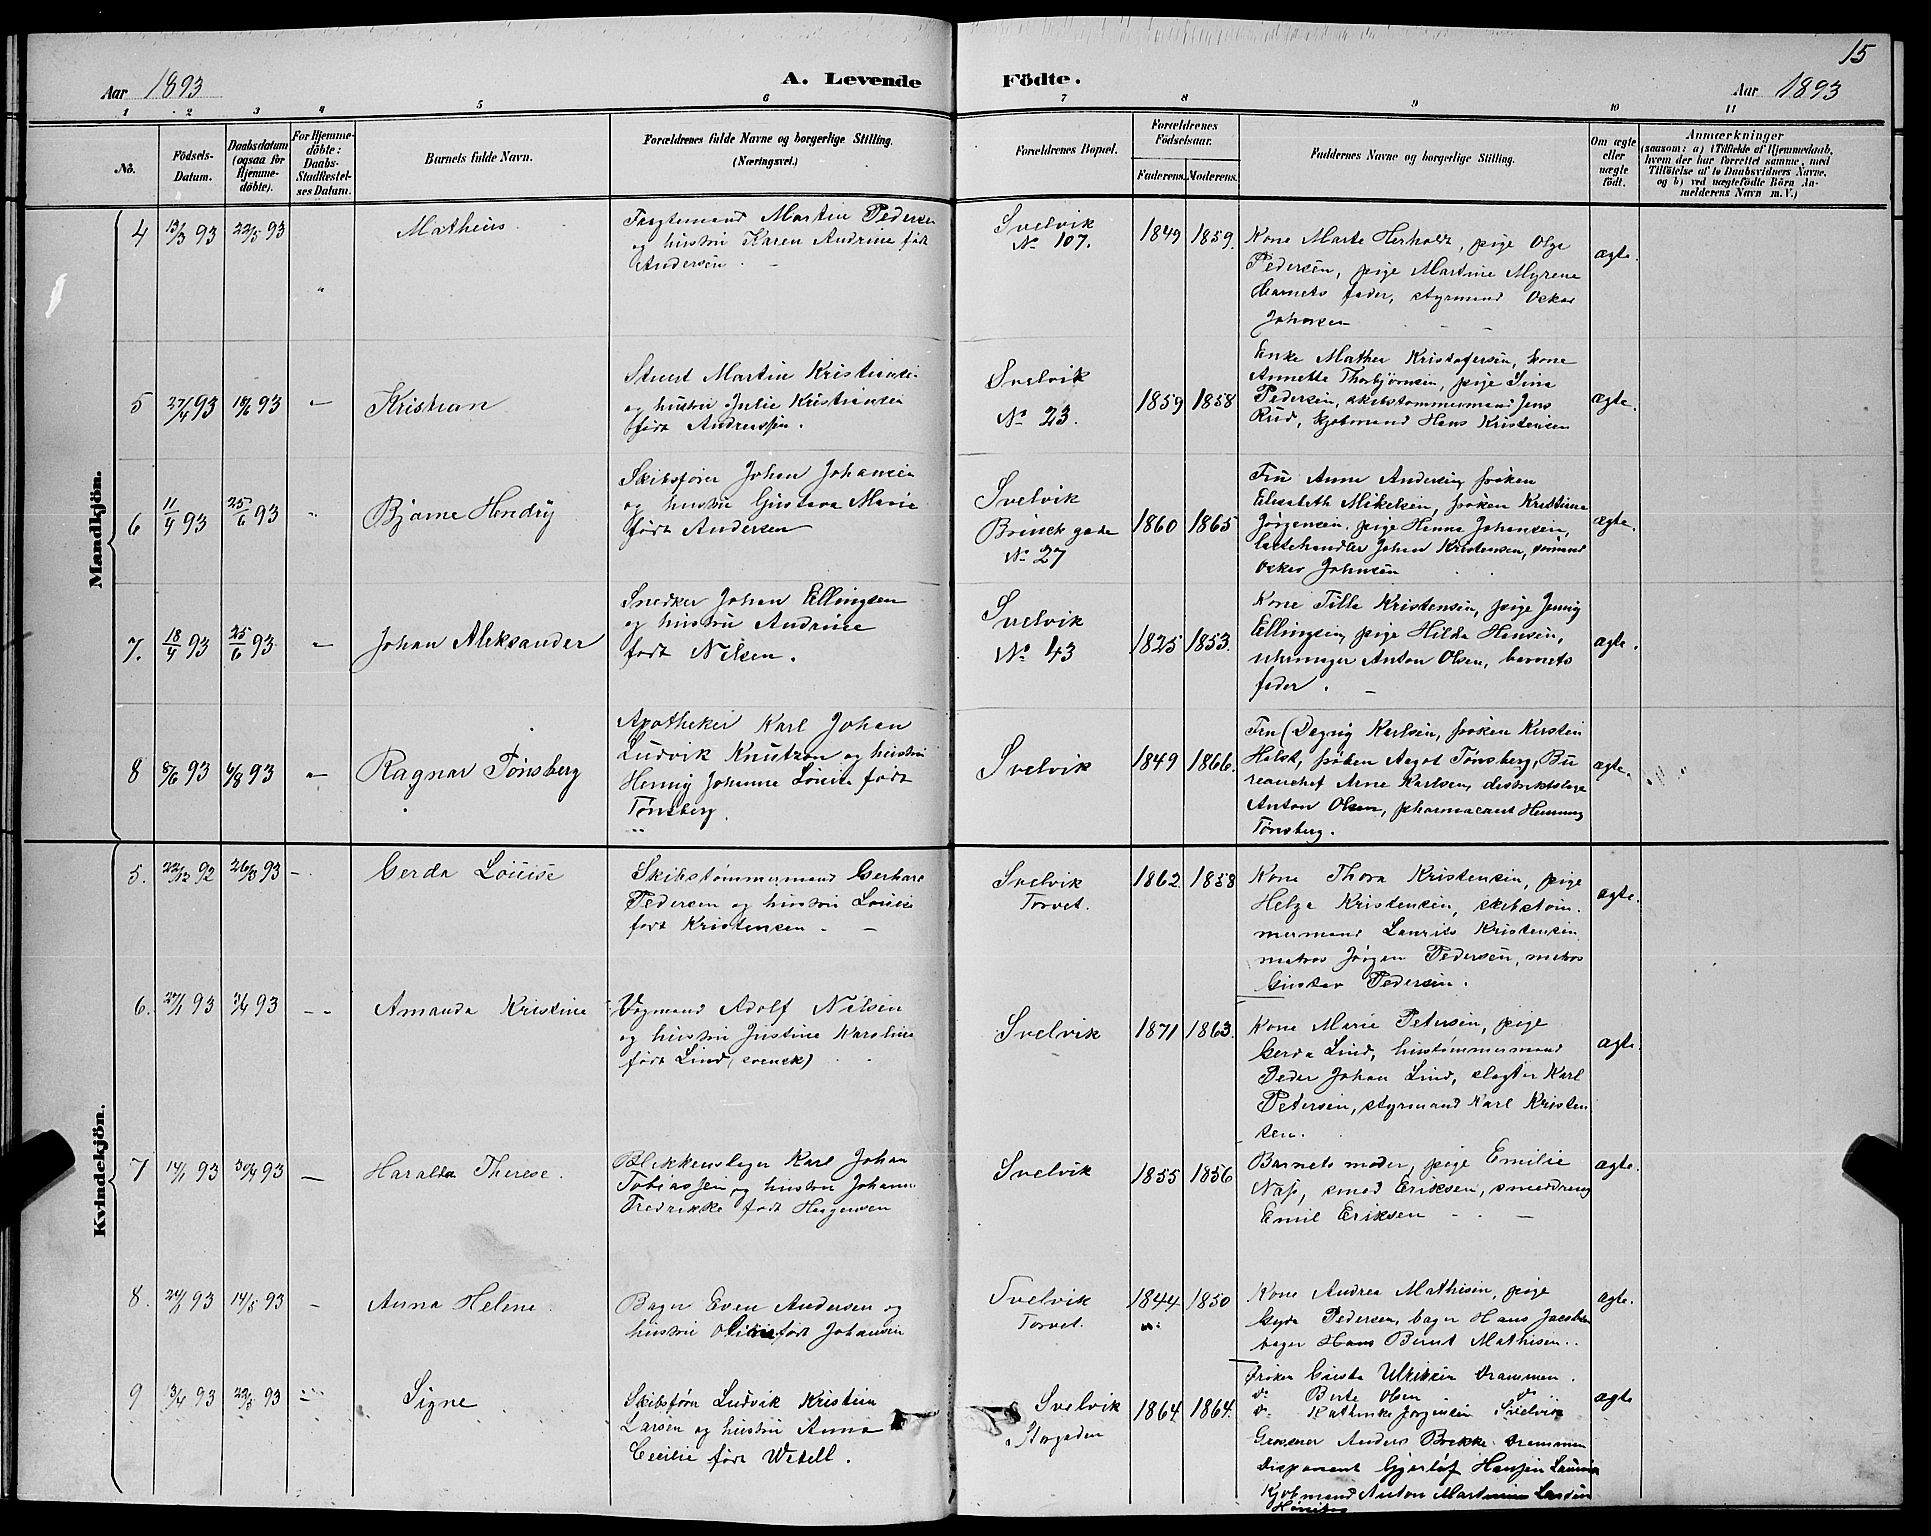 15
Aar 1893
A. Levende Födte.
Aar 1893
1 2 3 4 5 6 7 8 9 10 11
No.
Födsels-Datum.
Daabsdatum (ogsaa for Hjemmedöbte).
For Hjemmedöbte: Daabs-Stadfæstelses Datum.
Barnets fulde Navn.
Forældrenes fulde Navne og borgerlige Stilling. (Næringsvei.)
Forældrenes Bopæl.
Forældrenes Födselsaar.
Faderens. Moderens.
Faddernes Navne og borgerlige Stilling.
Om ægte eller uægte födt.
Anmærkninger
(saasom: a) i Tilfælde af Hjemmedaab,
hvem der har forrettet samme, med
Tilföielse af to Daabsvidners Navne,
og b) ved uægtefödte Börn An-
melderens Navn m. V.)
Mandkjön.
4 13/3 93 22/5 93 Matheus
Martin Pedersen
og hustru Karen Andrine født
Andersen.
Svelvik
No 107.
1849 1859.
Kone Marte Herholdt, pige Olga
Pedersen, pige Martine Myrene
barnets fader, styrmand Oskar
Johnsen
ægte.
5 27/4 93 18/6 93 Kristian
Stuert Martin Kristiansen
og hustru Julie Kristiansen
født Andreassen.
Svelvik
No 23.
1859 1858
Enke Mathea Kristofersen, kone
Annette Thorbjørnsen, pige Lina
Pedersen, skibstømmermand Jens
Rud, kjøbmand Hans Kristensen
ægte.
6 11/4 93 25/6 93 Bjarne Hendry
Skibsfører Johan Johansen
og hustru Gustava Marie
født Andersen
Svelvik
Brinck gade
No 27
1860 1865
Fru Anna Andersen, frøken
Elisabeth Mikelsen, frøken Kristine
Jørgensen, pige Hanna Johansen,
Johan Kristensen, sømand
Oskar Johnsen
ægte.
7. 18/4 93 25/6 93 Johan Aleksander
Snedker Johan Ellingsen
og hustru Andrine
født Nilsen.
Svelvik
No 43
1825 1853.
Kone Tilla Kristensen, pige Jenny
Ellingsen, pige Hilda Hansen,
Anton Olsen, barnets
fader.
ægte.
8 8/6 93 6/8 93 Ragnar Tønsberg
Apotheker Karl Johan
Ludvik Knutzon og hustru
Henny Johanne Louise født
Tønsberg.
Svelvik
1849 1866.
Fru Dagny Karlsen, frøken Kirsten
Holst, frøken Aagot Tønsberg, Bu
reauchef Arne Karlsen, distriktslæge
Anton Olsen, pharmaceut Henning
Tønsberg.
ægte.
Kvindekjön.
5. 22/12 92 26/3 93 Gerda Louise
Skibstømmermand Gerhard
Pedersen og hustru Louise
født Kristensen
Svelvik
Torvet.
1862 1858
Kone Thora Kristensen, pige
Helga Kristensen, skibstøm-
mermand Laurits Kristensen
matros Jørgen Pedersen, matros
Gustav Pedersen.
ægte.
6. 27/1 93 3/4 93 Amanda Kristine
Vognmand Adolf Nilsen
og hustru Justine Karoline
født Lind, (svensk)
Svelvik
1871 1863.
Kone Marie Petersen, pige
Gerda Lind, hustømmermand
Peder Johan Lind, slagter Karl
Petersen, styrmand Karl Kristen
sen.
ægte.
7 14/1 93 30/4 93 Haralda Therese.
Blikkenslager Karl Johan
Tobiassen og hustru Johanne
Fredrikke født Hergensen
Svelvik
1855 1856
Barnets moder, pige Emilie
Næss, smed Eriksen, smeddreng
Emil Eriksen
ægte.
8. 24/1 93 14/5 93 Anna Helene.
Bager Even Andersen og
hustru Oline født Johansen
Svelvik
Torvet.
1844 1850
Kone Andrea Mathisen, pige
Gyda Pedersen, bager Hans Jacobsen
bager Hans Bernt Mathisen.
ægte.
9 13/4 93 22/5 93 Signe
Skibsføre Ludvik Kristian
Larsen og hustru Anna
Cecilie født Wetell.
Svelvik
Storgaden
1864 1864.
Frøken Gusta Ulriksen Drammen.
do Berte Olsen do
do Kathinka Jørgensen Svelvik
Grosserer Anders Brekke Drammen
Disponent Gjerløf Hansen Laurvig
Kjøbmand Anton Martinius Larsen
ægte